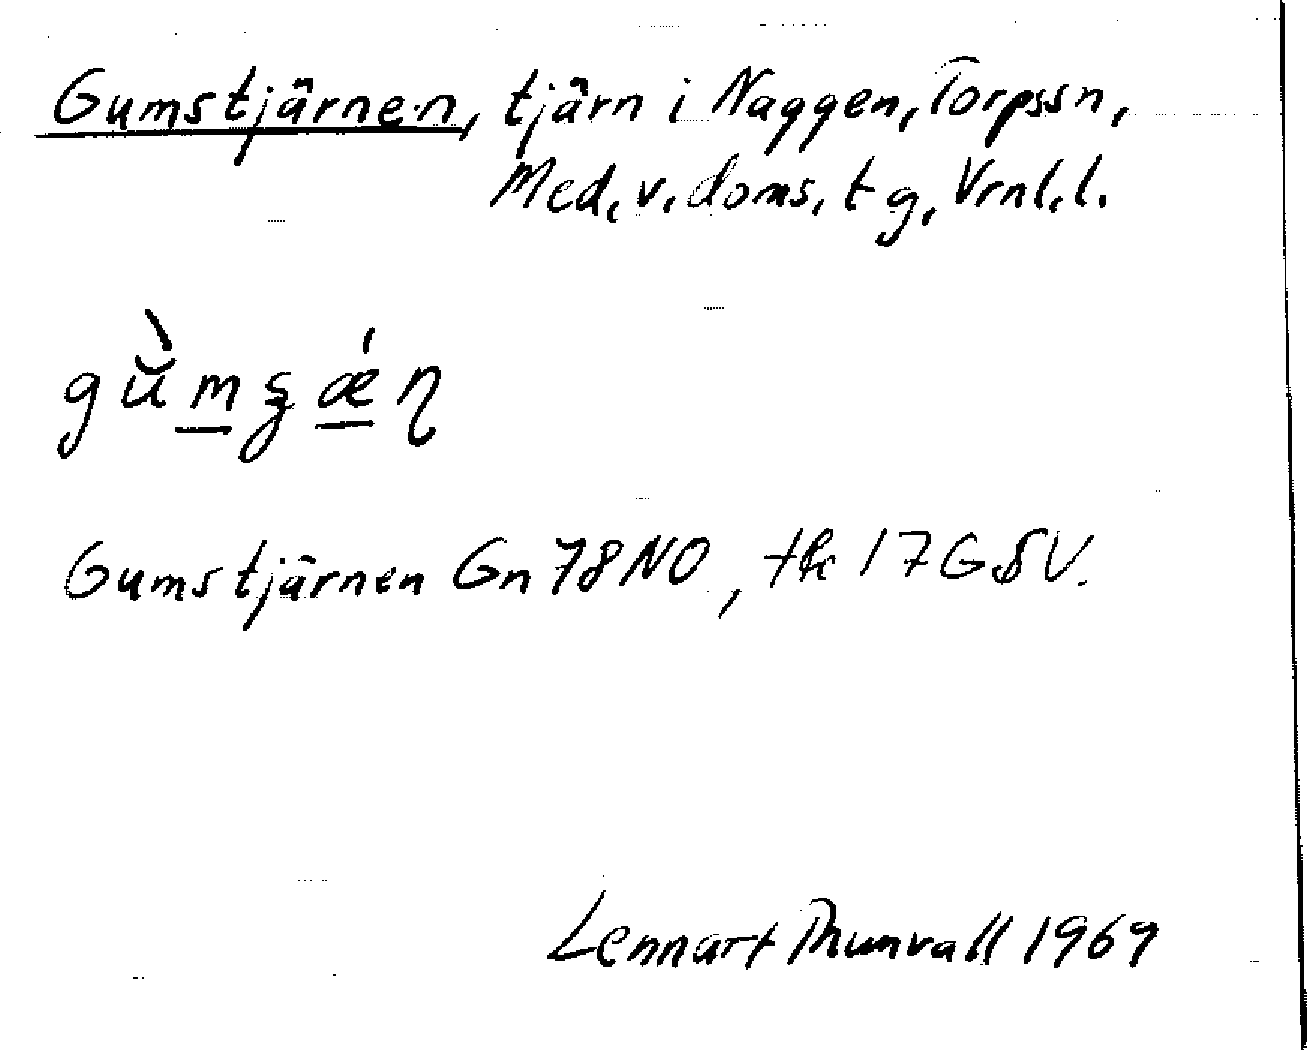 Gumstjärnen, tjärn i Naggen, Torpssn,
Med. v. doms. tg, Vrnl. l.
Gumstjärnen Gn 78 NO, tk 17 G SV.
Lennart Thunvall 1969